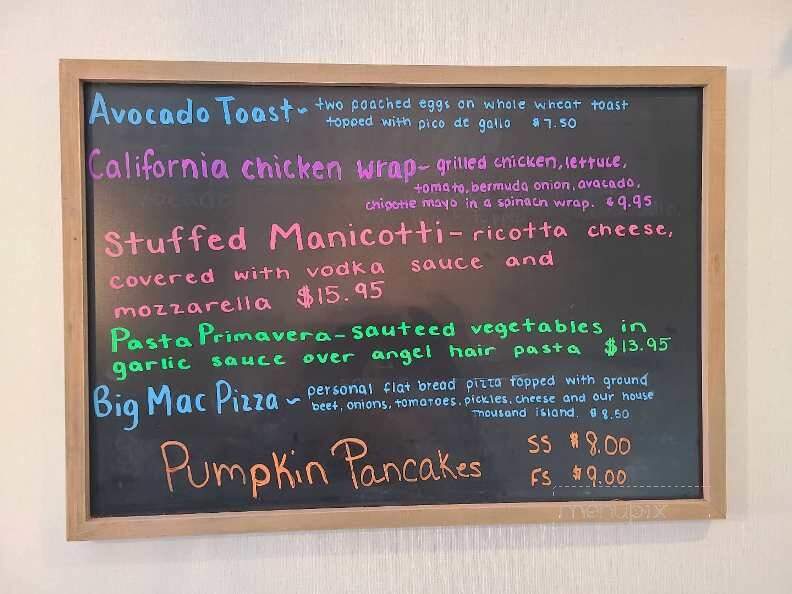 Avocado Toast~ two poached eggs on whole wheat toast
topped with pico de gallo $7.50
California chicken wrap~ grilled chicken, lettuce,
tomato, bermuda onion, avacado,
chipotle mayo in a spinach wrap. $9.95
Stuffed Manicotti- ricotta cheese,
covered with vodka sauce and
mozzarella $15.95
Pasta Primavera-sauteed vegetables in
garlic sauce over angel hair pasta $13.95
Big Mac Pizza ~ personal flat bread pizza topped with ground
beef, onions, tomatoes, pickles, cheese and our house
thousand island. $8.50
Pumpkin Pancakes SS $8.00
FS $9.00
menupix